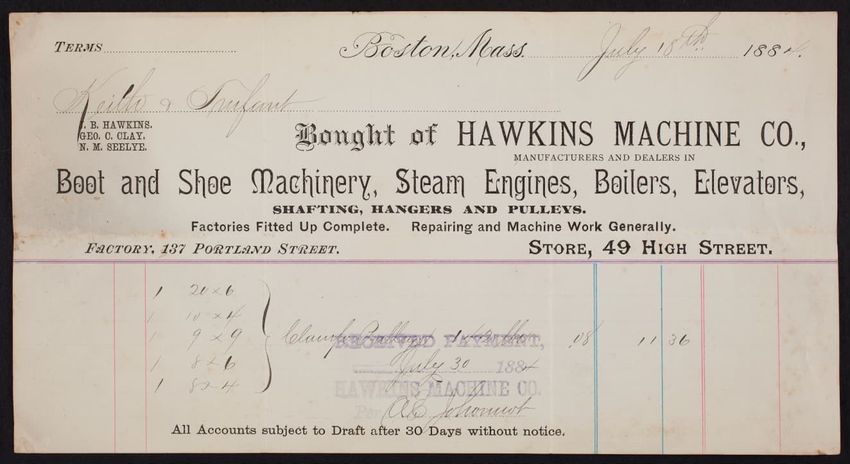 TERMS
Boston, Mass. July 18th 1884.
Keith &
J. B. HAWKINS.
GEO. C. CLAY.
N. M. SEELYE.
Bought of HAWKINS MACHINE CO.,
MANUFACTURERS AND DEALERS IN
Boot and Shoe Machinery, Steam Engines, Boilers, Elevators,
SHAFTING, HANGERS AND PULLEYS.
Factories Fitted Up Complete. Repairing and Machine Work Generally.
FACTORY, 137 PORTLAND STREET. STORE, 49 HIGH STREET.
1 20 x 6
1 10 x 4
1 9 x 9 Clamp Pulleys 142 lbs .08 11 36
1 8 x 6
1 8 x 4
RECEIVED PAYMENT,
July 30 1884
HAWKINS MACHINE CO.
Per
All Accounts subject to Draft after 30 Days without notice.